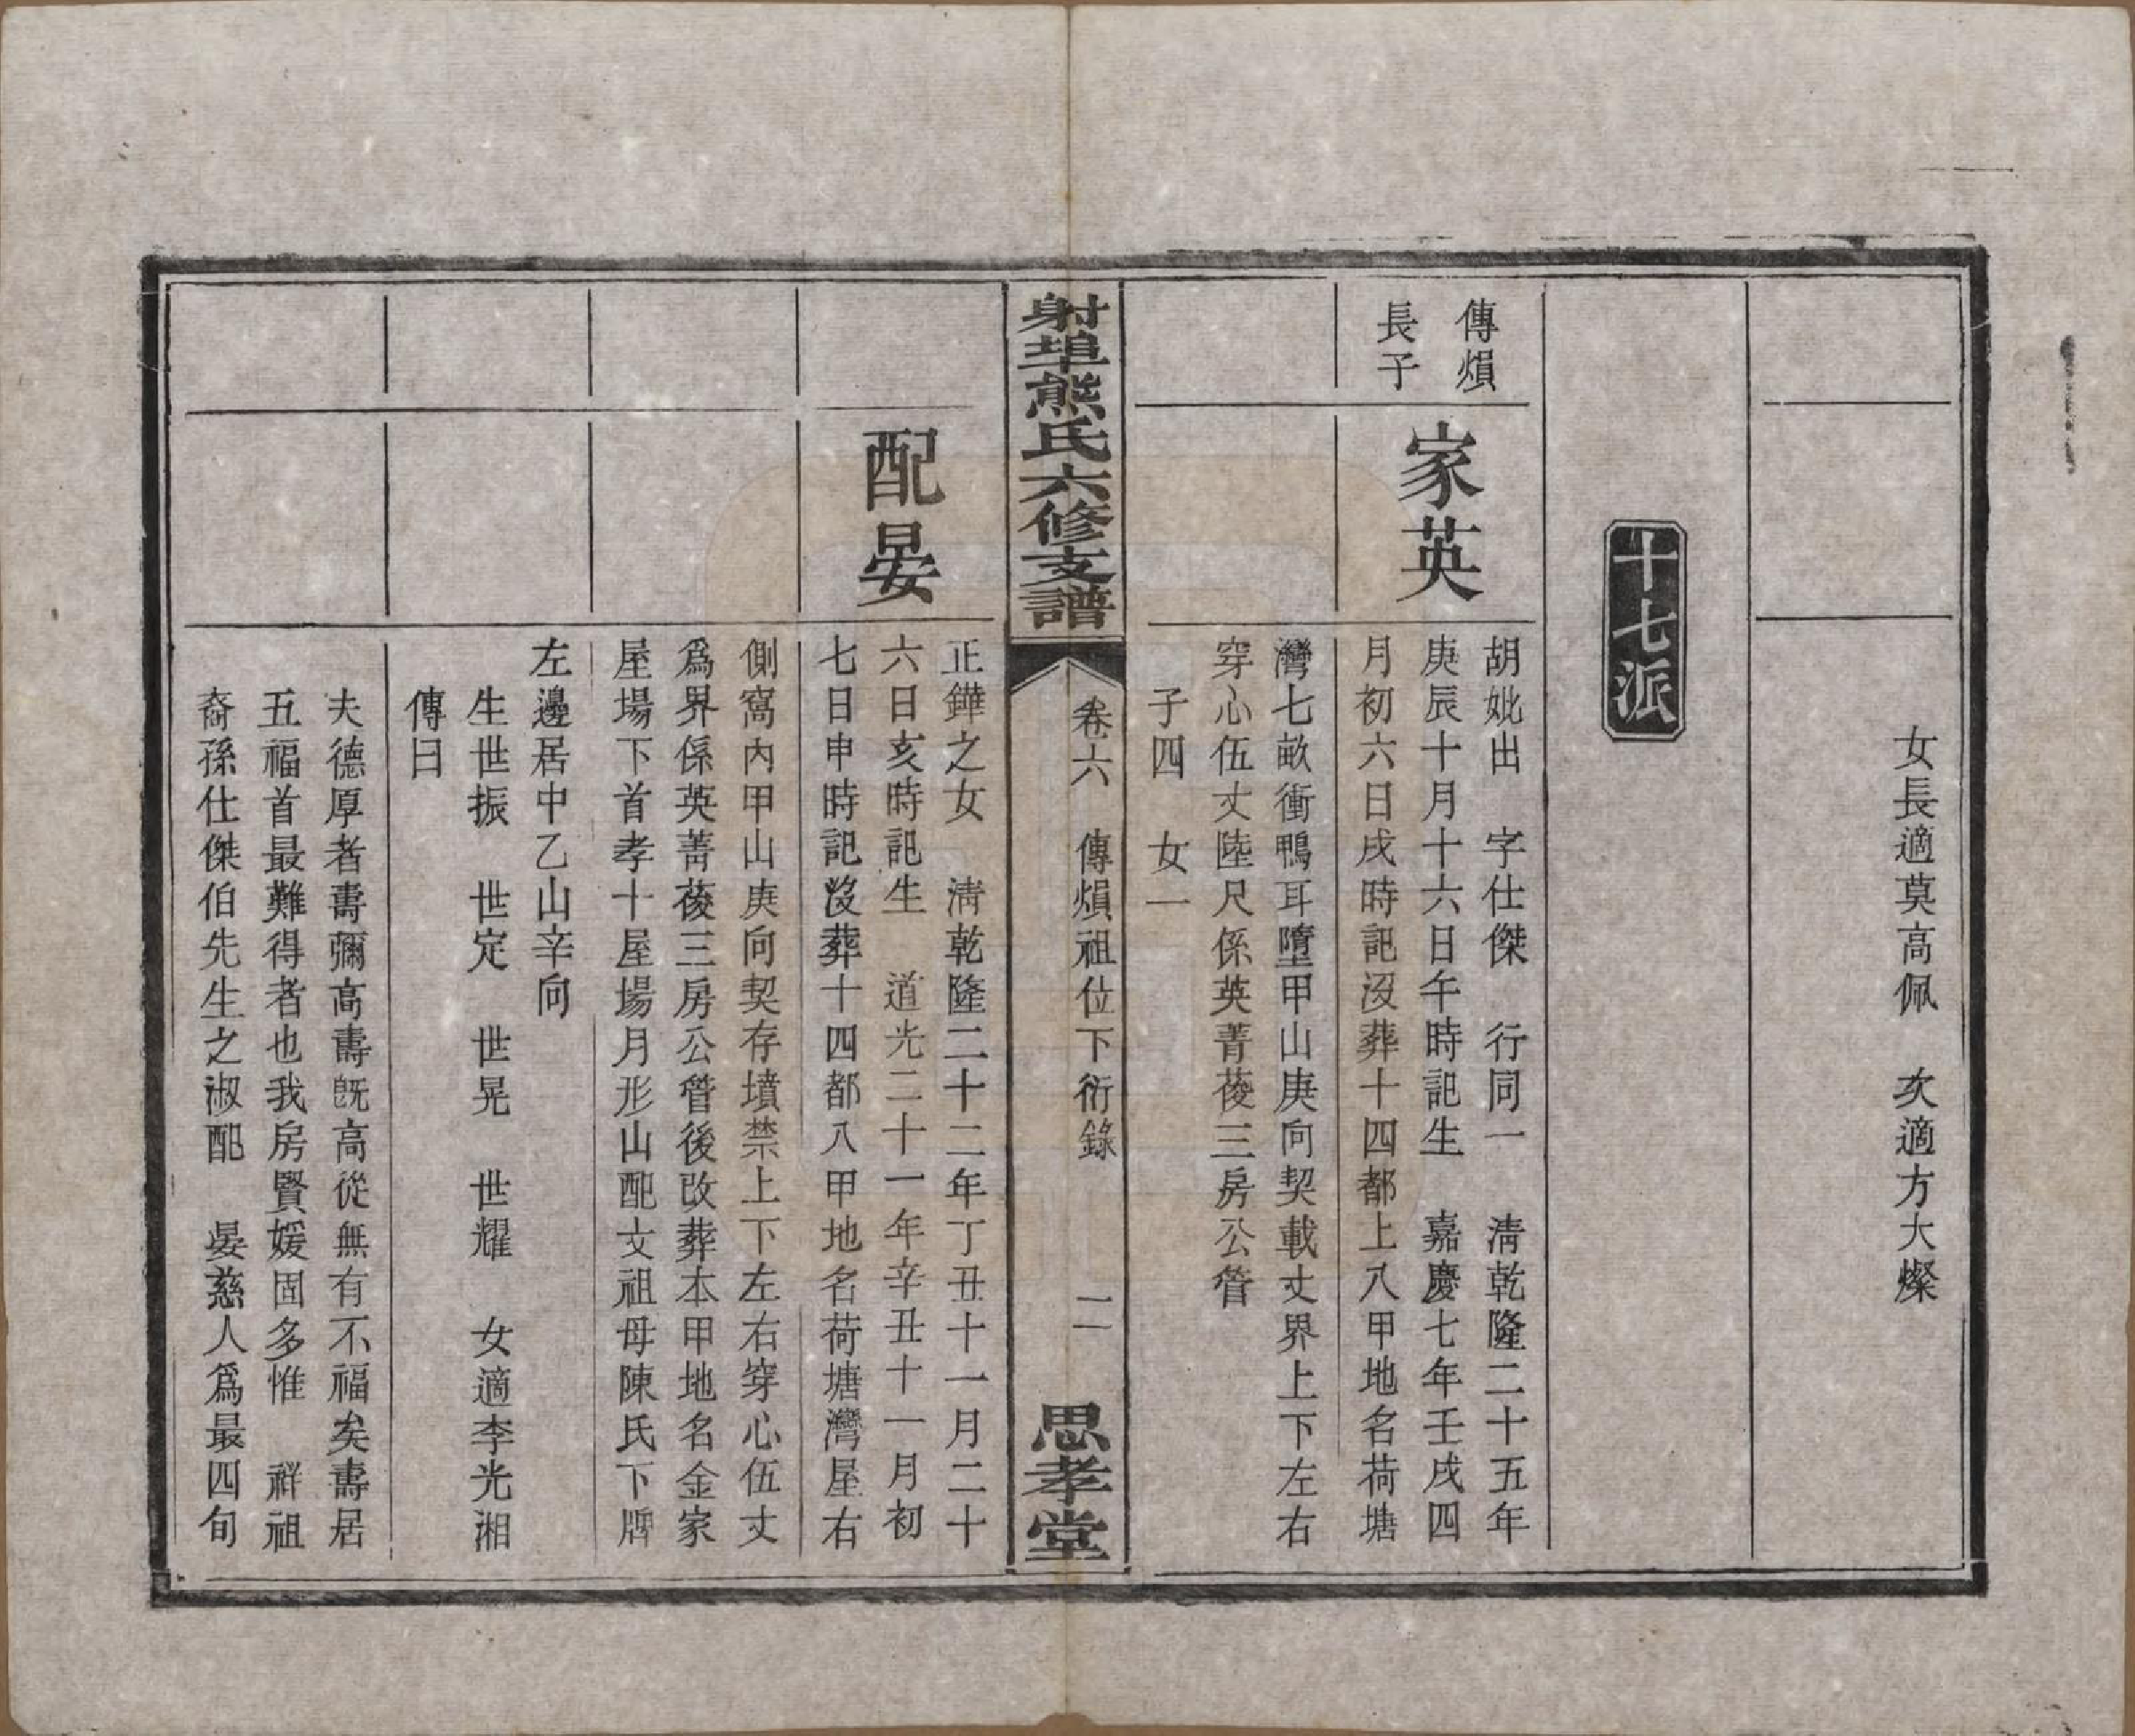 女長適莫高佩　次適方大燦
十七派
傳熉
長子
家英
胡妣出　字仕傑　行同一　淸乾隆二十五年
庚辰十月十六日午時記生　嘉慶七年壬戌四
月初六日戌時記沒葬十四都上八甲地名荷塘
灣七畝衝鴨耳墮甲山庚向契載丈界上下左右
穿心伍丈陸尺係英菁葰三房公管
子四　女一
射埠熊氏六修支譜
卷六　傳熉祖位下衍錄
二
思孝堂
配晏
正鏵之女　淸乾隆二十二年丁丑十一月二十
六日亥時記生　道光二十一年辛丑十一月初
七日申時記沒葬十四都八甲地名荷塘灣屋右
側窩內甲山庚向契存墳禁上下左右穿心伍丈
爲界係英菁葰三房公管後改葬本甲地名金家
屋場下首孝十屋場月形山配文祖母陳氏下牌
左邊居中乙山辛向
生世振　世定　世晃　世耀　女適李光湘
傳曰
夫德厚者壽彌高壽旣高從無有不福矣壽居
五福首最難得者也我房賢媛固多惟　祥祖
裔孫仕傑伯先生之淑配　晏慈人爲最四旬